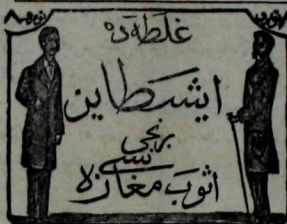 غلطه ده
ایشطاین
برنجی
اثوب مغازه سی